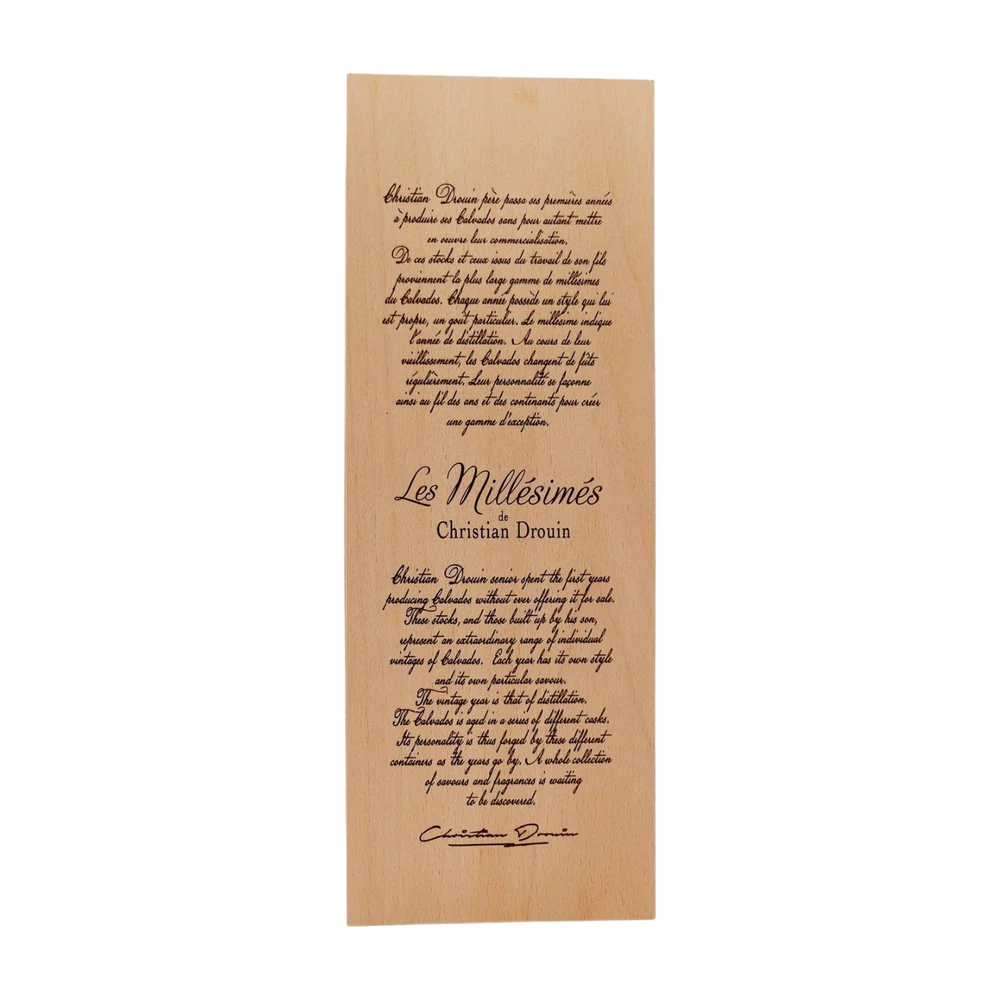 Christian Drouin père passa ses premières années
à produire ses Calvados sans pour autant mettre
en oeuvre leur commercialisation.
De ces stocks et ceux issus du travail de son fils
proviennent la plus large gamme de millésimes
du Calvados. Chaque année possède un style qui lui
est propre, un goût particulier. Le millésime indique
l'année de distillation. Au cours de leur
vieillissement, les Calvados changent de fûts
régulièrement. Leur personnalité se façonne
ainsi au fil des ans et des contenants pour créer
une gamme d'exception.
Les Millésimés
de
Christian Drouin
Christian Drouin senior spent the first years
producing Calvados without ever offering it for sale.
These stocks, and those built up by his son,
represent an extraordinary range of individual
vintages of Calvados. Each year has its own style
and its own particular savour.
The vintage year is that of distillation.
The Calvados is aged in a series of different casks.
Its personality is thus forged by these different
containers as the years go by. A whole collection
of savours and fragrances is waiting
to be discovered.
Christian Drouin